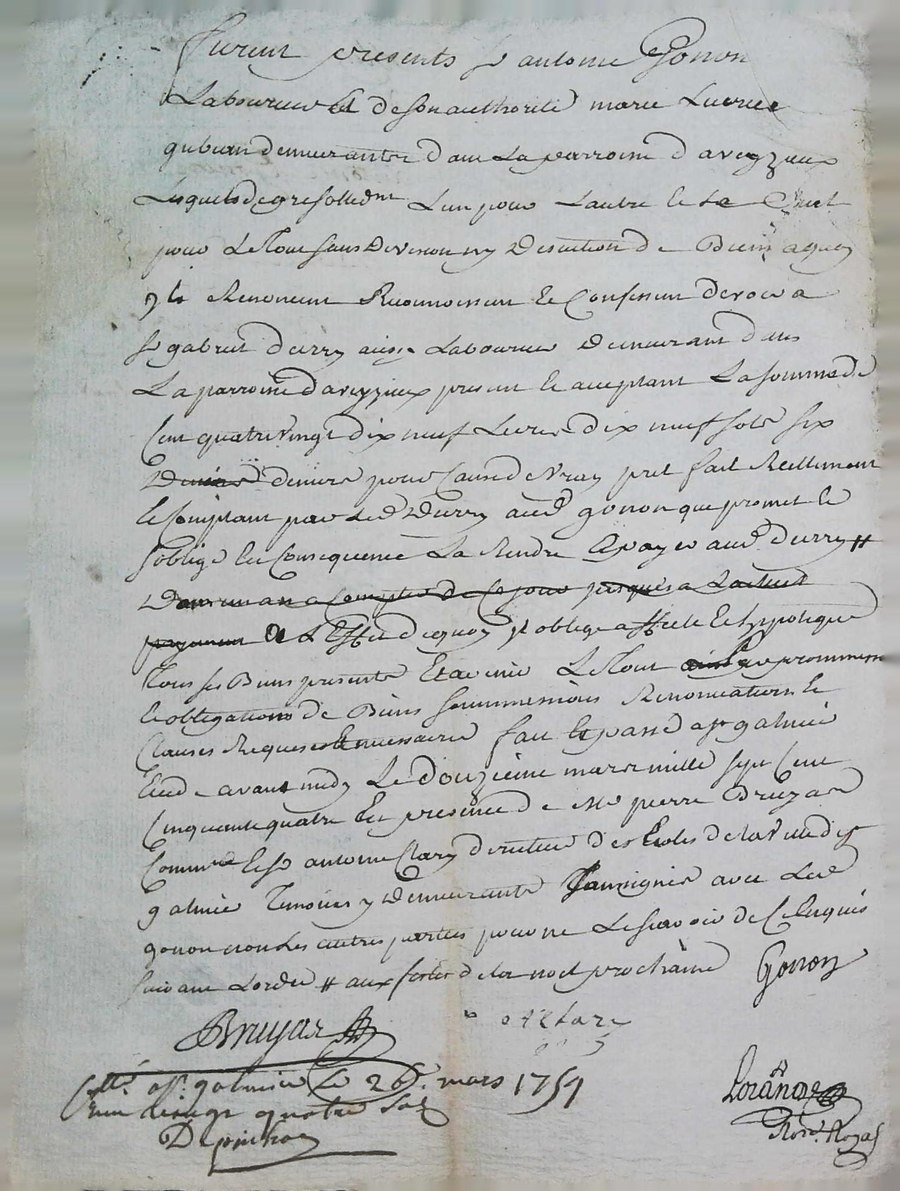 furent presents sr antoine Gonon
Laboureur et de son authorité marie
demeurants dans La parroisse daveyzieux
Lesquels de gre Lun pour Lautre et Le Seul
pour Le Tout sans Division ny Discution de Biens aquoy
ils Renoncent Reconnoissent et Confessent devoir a
sr gabriel Durry aussy Laboureur demeurant dans
La parroisse daveyzieux present et aceptant La somme de
Cent quatre Vingt dix neuf Livres dix neuf sols six
deniers pour Cause de Vray pret fait Reellement
et Comptant par Led Durry aud gonon que promet et
soblige en Consequence La Rendre et payer aud durry #
Dans un an a Compter de Ce jour jusques a Lactuel
payement a Leffet dequoy il oblige affecte et hypoteque
tous ses Biens presents Et avenir Le Tout par promesse
et obligations de Biens soummissions Renonciations et
Clauses Requises et necessaires fait et passé a st galmier
Etude avant midy Le Douzieme mars mille sept Cent
Cinquante quatre En presence de Me pierre Bruyas
Commre et sr antoine Clary directeur des Ecoles de la Ville de st
galmier Temoins y Demeurants soussignés avec Led
gonon non Les autres parties pour ne Le scavoir de Ce Enquis
suivant Lordce # aux festes de la noel prochaine Gonon
Bruyas
Cllé a st galmier Le 26e mars 1754
vingt quatre sols
Notre Royal